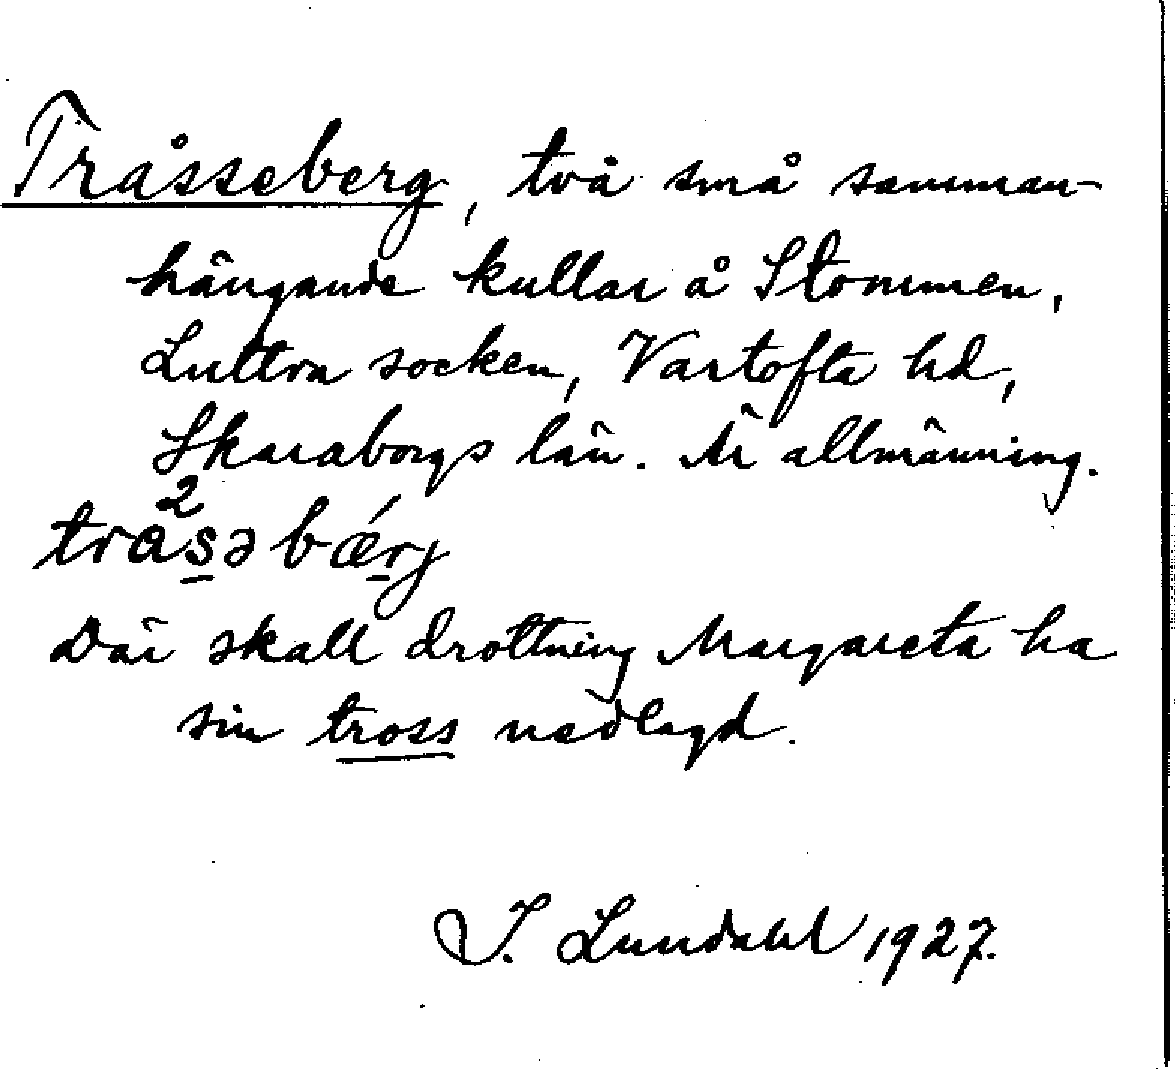 Tråsseberg, två små samman-
hängande kullar å Stommen,
Luttra socken, Vartofta hd,
Skaraborgs län. Är allmänning.
trå²səbǽrj
Där skall drottning Margareta ha
sin tross nedlagd.
I. Lundahl 1927.